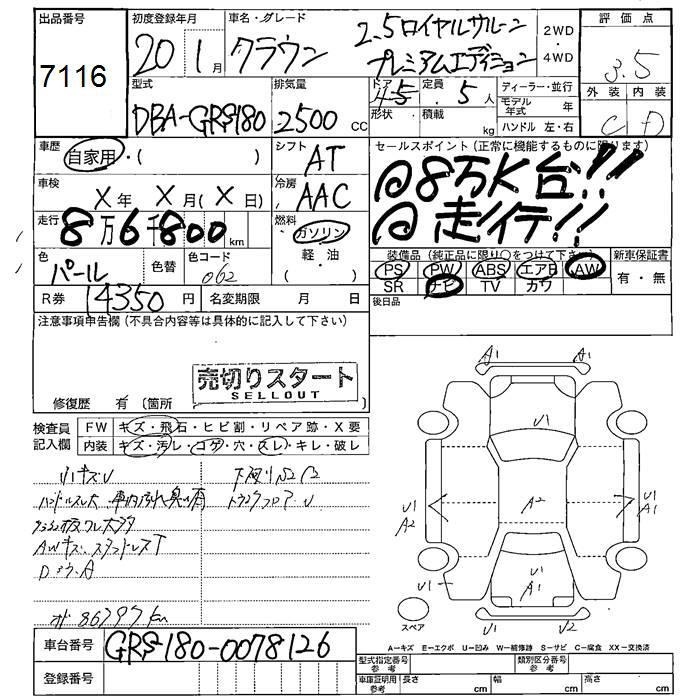 出品番号
7116
初度登録年月
20 1月
車名・グレード
クラウン
2.5ロイヤルサルーン
プレミアムエディション
2WD
・
4WD
評価点
3.5
外装 内装
C D
型式
DBA-GRS180
排気量
2500 CC
ドア
4 5
形状
定員
5人
積載
kg
ディーラー・並行
モデル年式 年
ハンドル 左・右
車歴
自家用・( )
シフト
AT
セールスポイント(正常に機能するものに限ります)
@8万K台!!
@走行!!
車検
X年 X月(X日)
冷房
AAC
走行
8万6千800km
燃料
ガソリン
軽・油
( )
色
パール
色替
色コード
062
装備品(純正品に限り○をつけて下さい)
PS PW ABS エアB AW
SR ナビ TV カワ
新車保証書
有・無
R券 14350円
名変期限 月 日
後日品
注意事項申告欄(不具合内容等は具体的に記入して下さい)
売切りスタート
SELLOUT
修復歴 有(箇所
検査員
記入欄
FW キズ・飛石・ヒビ割・リペア跡・X要
内装 キズ・汚レ・コゲ・穴・スレ・キレ・破レ
小キズU
ハンドルスレ大
トランクフロアU
AWキズ
オド 86797km
A1 A1
U1
A2
U1
A2
U1
A1
U1
U1
A1
U1 U2
スペア
A-キズ E-エクボ U-凹み W-補修跡 S-サビ C-腐食 XX-交換済
車台番号 GRS180-0078126
登録番号
型式指定番号
参考
類別区分番号
参考
車庫証明用
参考
長さ cm
幅 cm
高さ cm